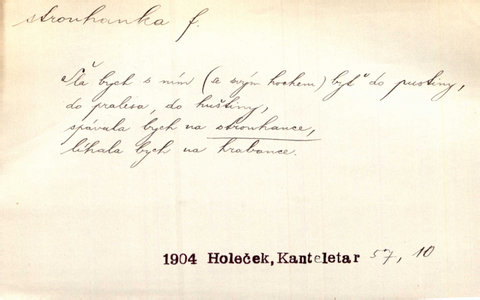 strouhanka f.
Šla bych s ním (a svým hochem) byť do pustiny,
do pralesa, do huštiny,
spávala bych na strouhance,
líhala bych na hrabance.
1904 Holeček, Kanteletar 57, 10